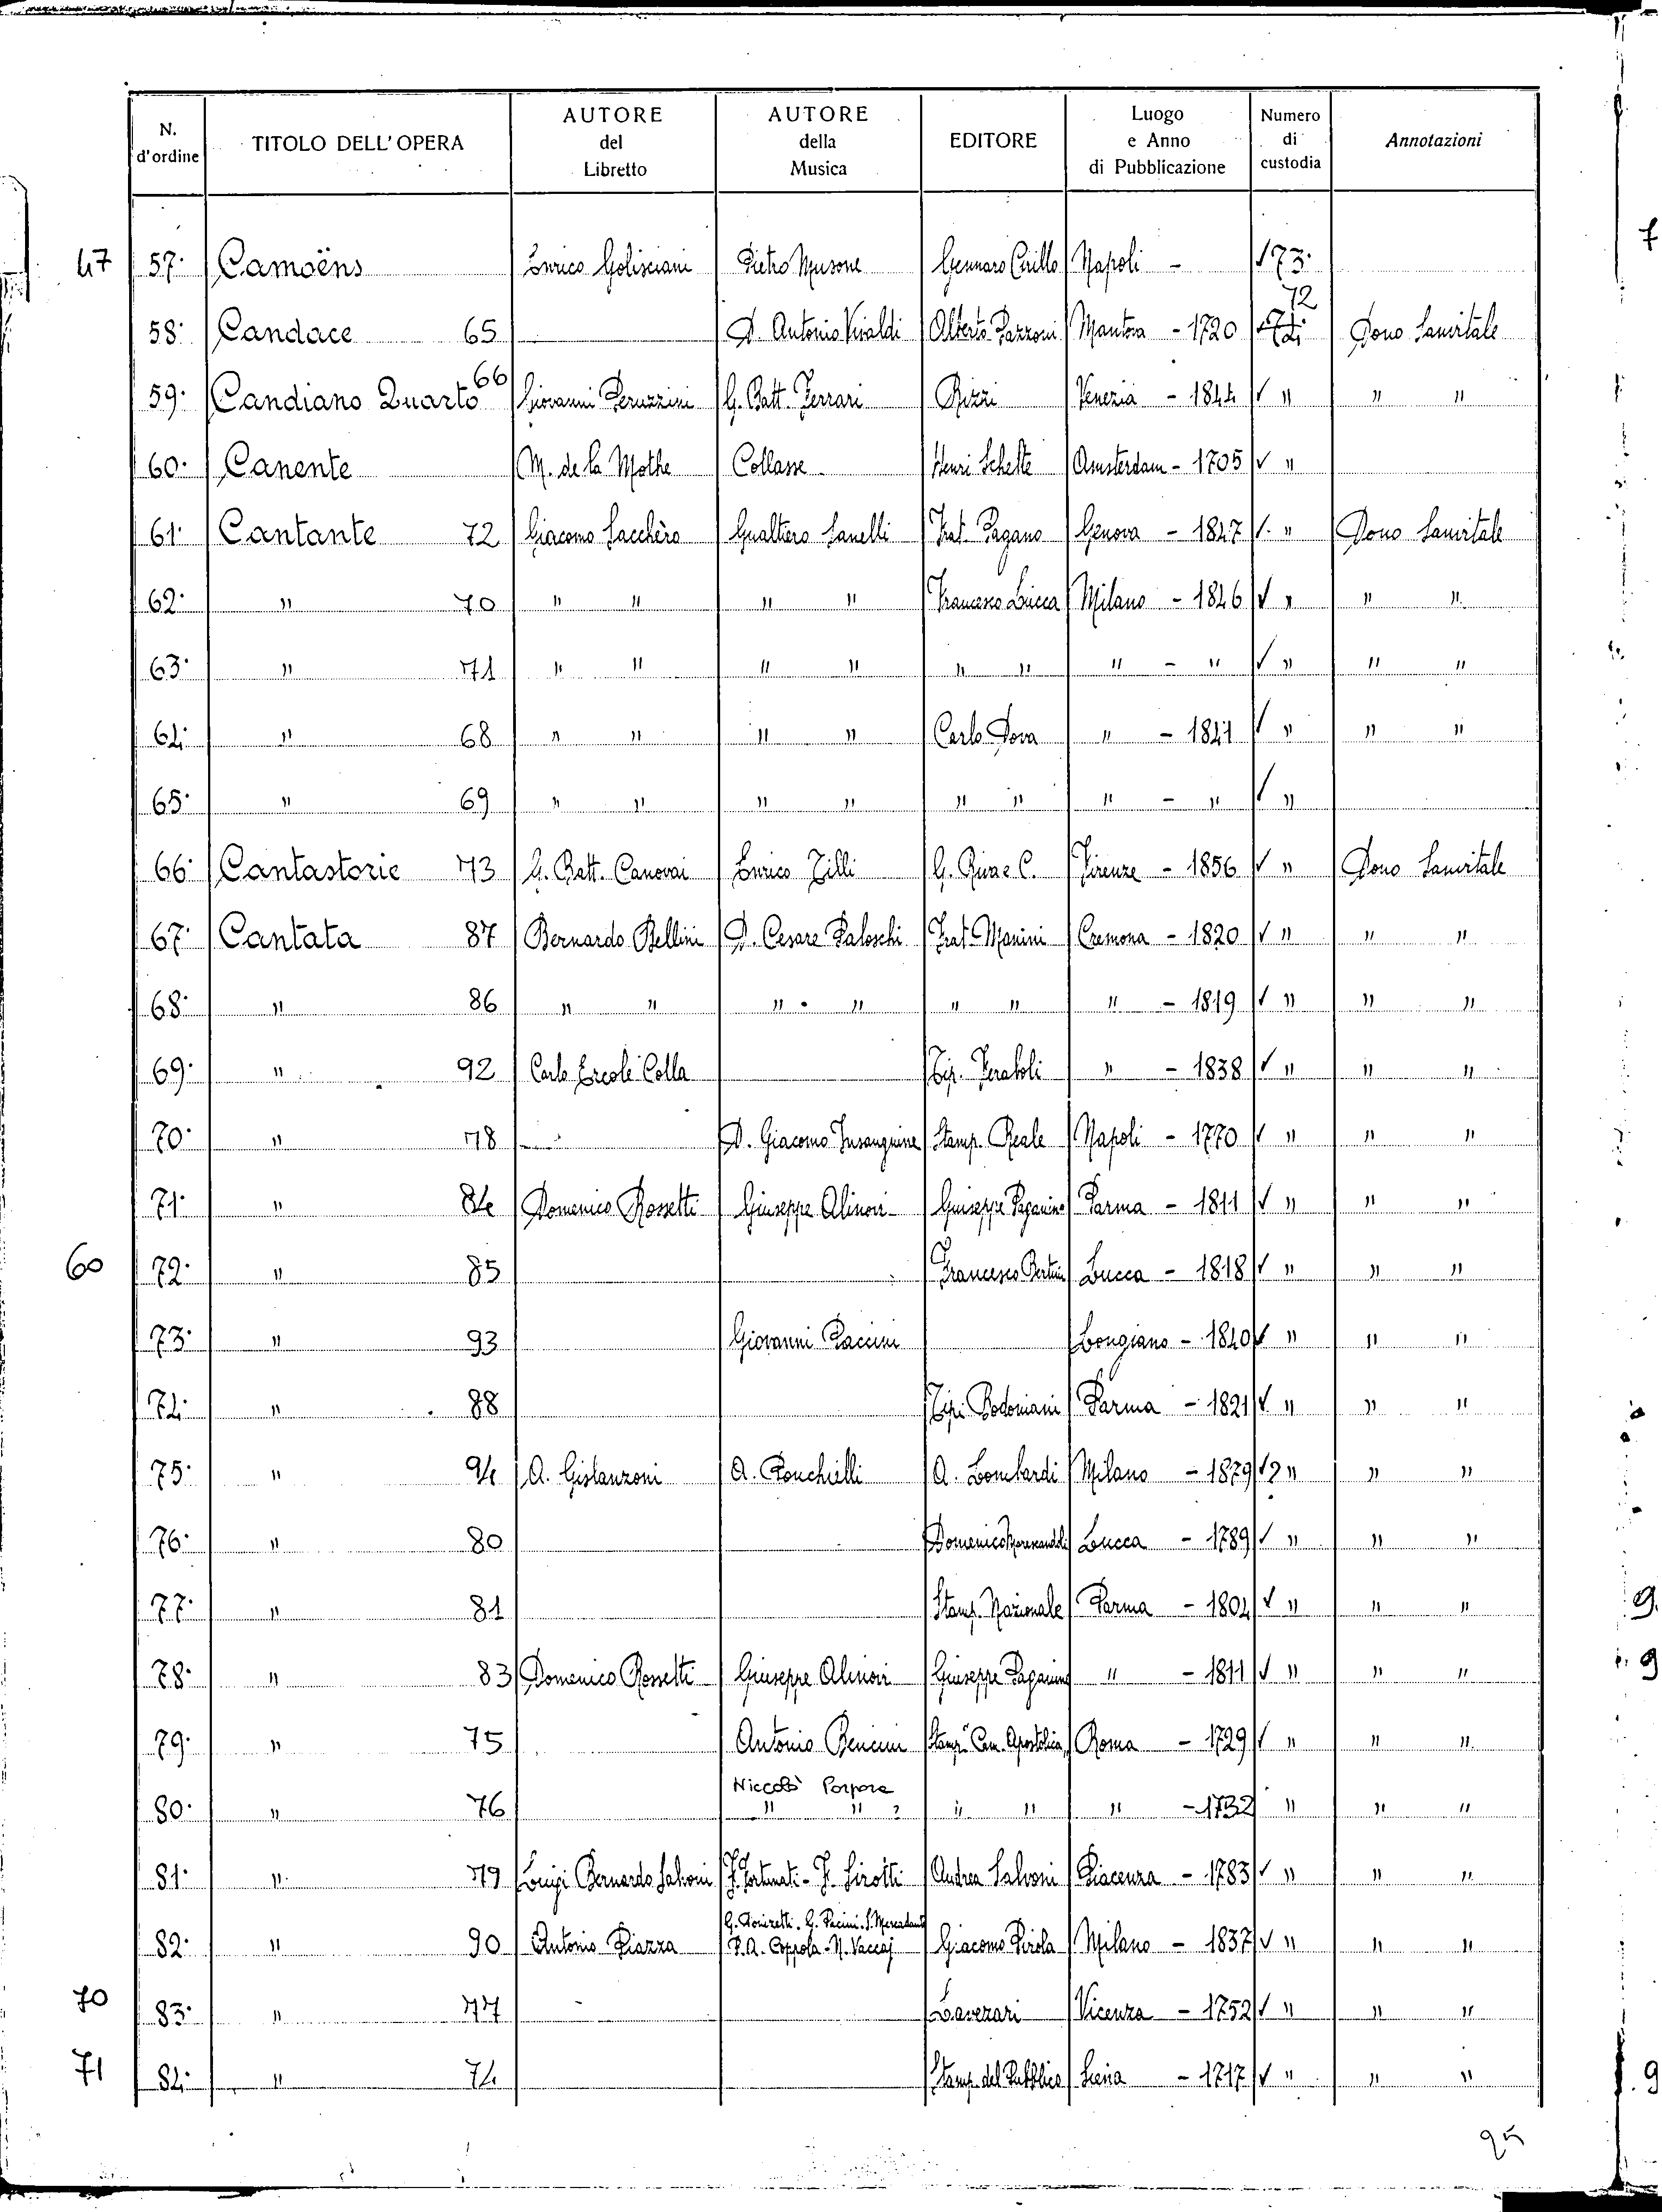 N. d'ordine | TITOLO DELL'OPERA | AUTORE del Libretto | AUTORE della Musica | EDITORE | Luogo e Anno di Pubblicazione | Numero di custodia | Annotazioni
47 57· Camoëns Enrico Golisciani Pietro Musone Gennaro Cirillo Napoli - √ 73·
72
58· Candace 65 D. Antonio Vivaldi Alberto Pazzoni Mantova - 1720 Dono Sanvitale
59· Candiano Quarto 66 Giovanni Peruzzini G. Batt. Ferrari Rizzi Venezia - 1844 √ " " "
60· Canente M. de la Mothe Collasse Henri Schelte Amsterdam - 1705 √ "
61· Cantante 72 Giacomo Sacchèro Gualtiero Sanelli Frat. Pagano Genova - 1847 √ " Dono Sanvitale
62· " 70 " " " " Francesco Lucca Milano - 1846 √ " " "
63· " 71 " " " " " " " - " √ " " "
64· " 68 " " " " Carlo Dova " - 1841 √ " " "
65· " 69 " " " " " " " - " √ "
66· Cantastorie 73 G. Batt. Canovai Enrico Zilli G. Riva e C. Firenze - 1856 √ " Dono Sanvitale
67· Cantata 87 Bernardo Bellini D. Cesare Paloschi Frat. Manini Cremona - 1820 √ " " "
68· " 86 " " " " " " " - 1819 √ " " "
69· " 92 Carlo Ercole Colla Tip. Feraboli " - 1838 √ " " "
70· " 78 D. Giacomo Insanguine Stamp. Reale Napoli - 1770 √ " " "
71· " 84 Domenico Rossetti Giuseppe Alinovi Giuseppe Paganino Parma - 1811 √ " " "
60 72· " 85 Francesco Bertini Lucca - 1818 √ " " "
73· " 93 Giovanni Paccini Longiano - 1840 √ " " "
74· " 88 Tipi Bodoniani Parma - 1821 √ " " "
75· " 94 A. Gislanzoni A. Ponchielli A. Lombardi Milano - 1879 √ 2 " " "
76· " 80 Domenico Lucca - 1789 √ " " "
77· " 81 Stamp. Nazionale Parma - 1804 √ " " "
78· " 83 Domenico Rossetti Giuseppe Alinovi Giuseppe Paganino " - 1811 √ " " "
79· " 75 Antonio Bencini Stamp. Cam. Apostolica Roma - 1729 √ " " "
Niccolò Porpora
80· " 76 " " ? " " " - 1732 " " "
81· " 79 Luigi Bernardo Salvoni F. Fortunati - F. Sirotti Andrea Salvoni Piacenza - 1783 √ " " "
G. Donizetti. G. Pacini. S. Mercadante
82· " 90 Antonio Piazza P. A. Coppola - N. Vaccaj Giacomo Pirola Milano - 1837 √ " " "
70 83· " 77 Lavezari Vicenza - 1752 √ " " "
71 84· " 74 Stamp. del Pubblico Siena - 1717 √ " " "